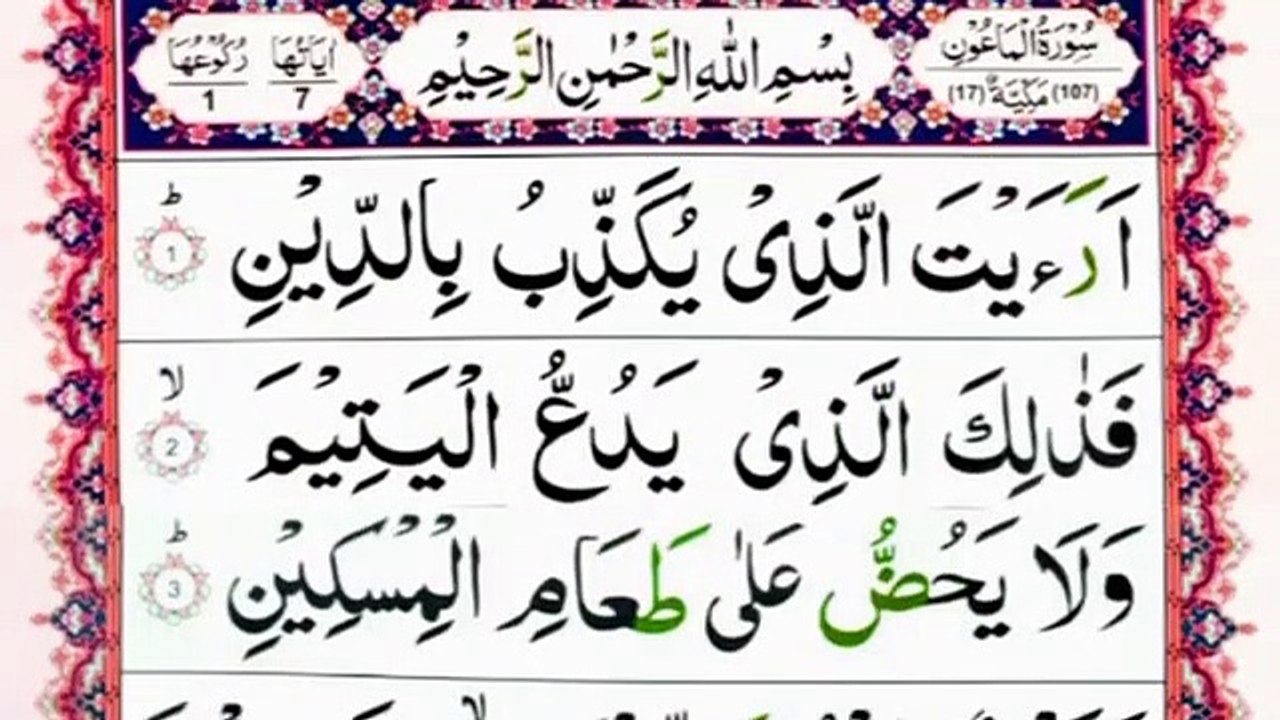 سُوْرَةُ الْمَاعُوْنِ
(107) مَكِّيَّةٌ (17)
بِسْمِ اللّٰهِ الرَّحْمٰنِ الرَّحِيْمِ
اٰيَاتُهَا 7
رُكُوْعُهَا 1
اَرَءَيْتَ الَّذِىْ يُكَذِّبُ بِالدِّيْنِ ؕ 1
فَذٰلِكَ الَّذِىْ يَدُعُّ الْيَتِيْمَ ۙ 2
وَلَا يَحُضُّ عَلٰى طَعَامِ الْمِسْكِيْنِ ؕ 3